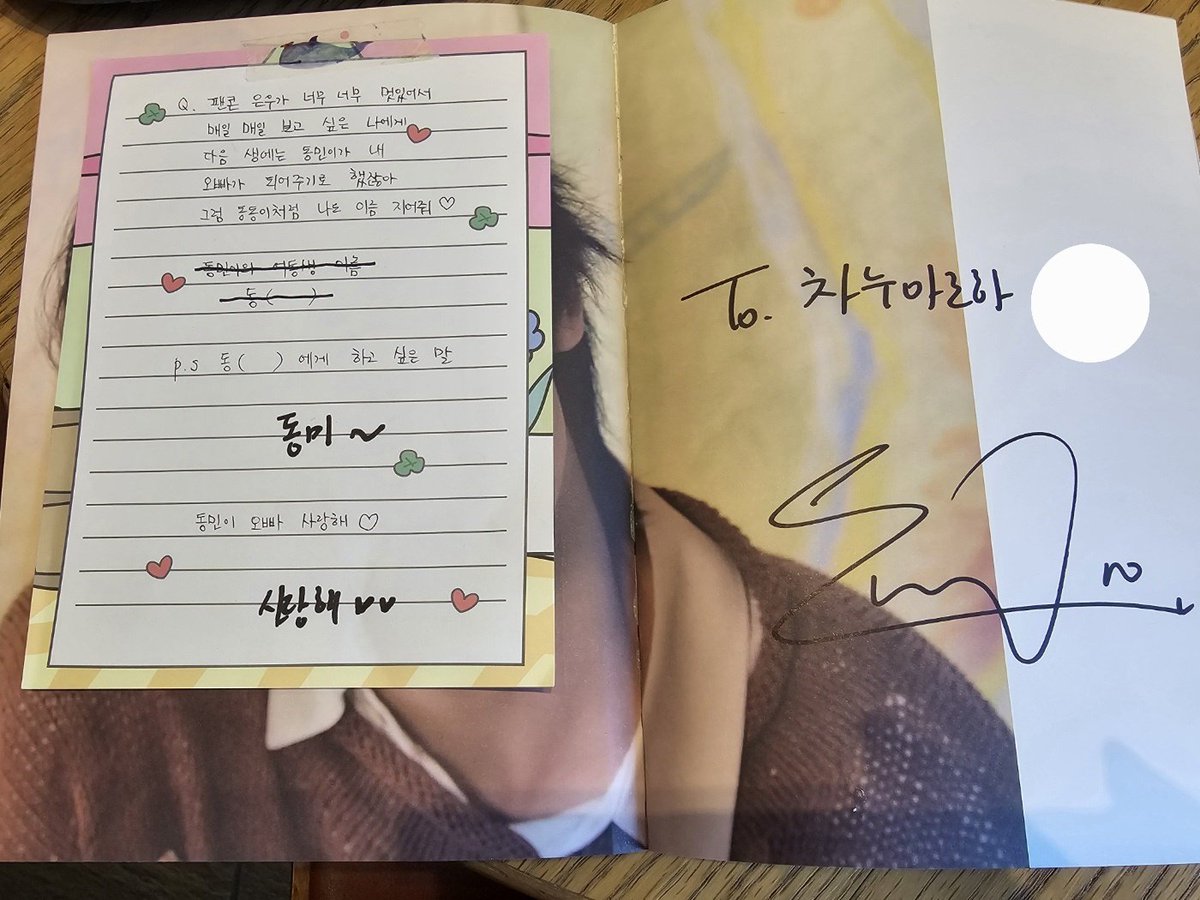 Q. 팬콘 은우가 너무 너무 멋있어서
매일 매일 보고 싶은 나에게
다음 생에는 동민이가 내
오빠가 되어주기로 했잖아
그럼 동동이처럼 나도 이름 지어줘♡
동민이의 여동생 이름
동( )
p.s 동( )에게 하고 싶은 말
동미~
동민이 오빠 사랑해♡
사랑해♥♥
To. 차누아로하